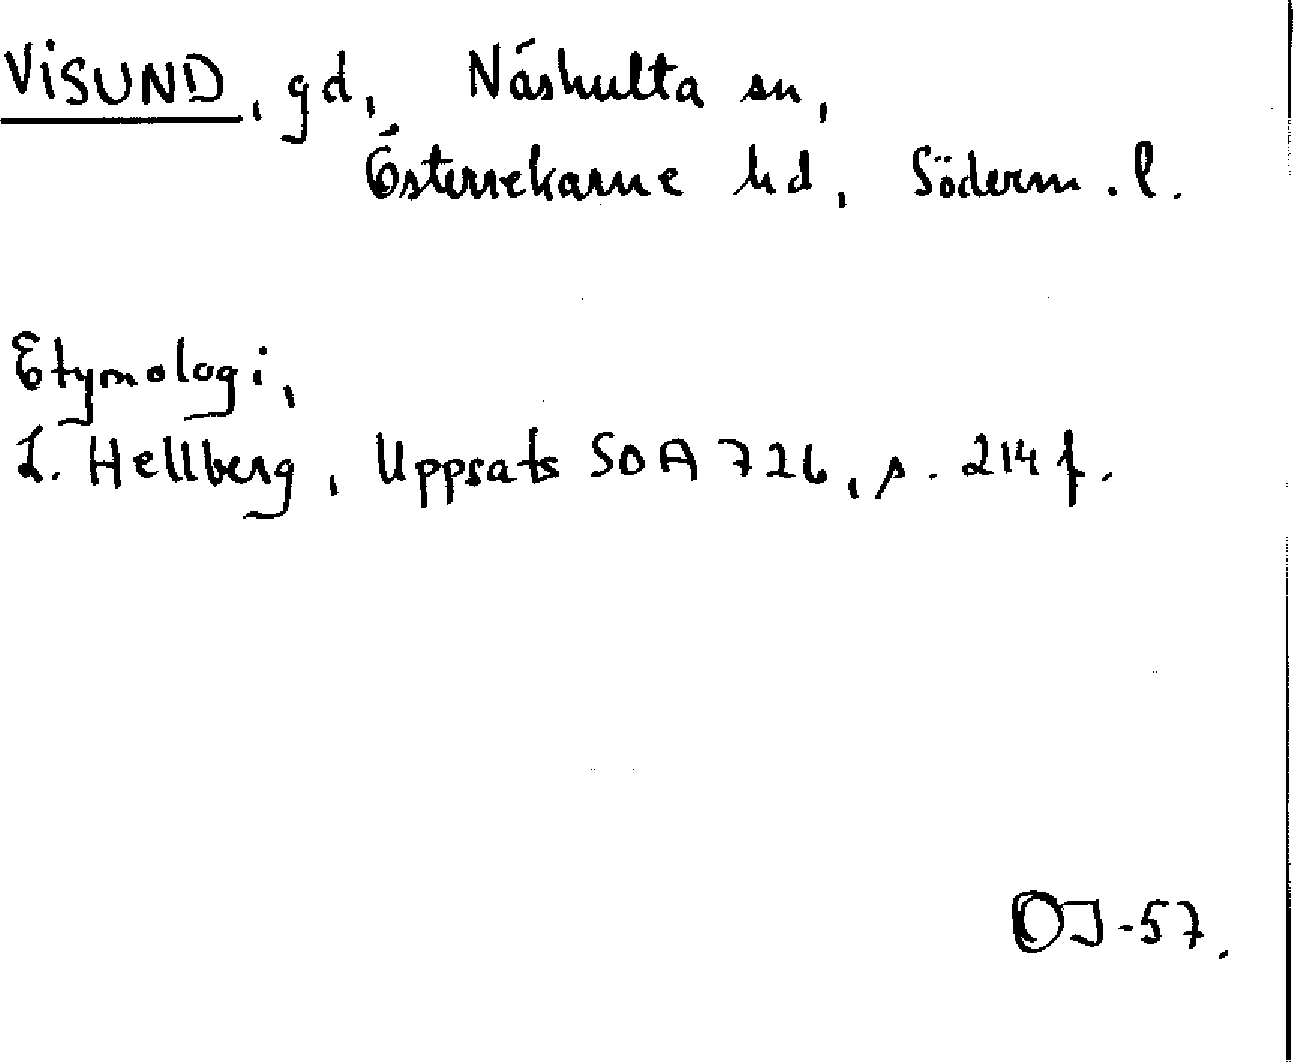 VISUND, gd, Näshulta sn,
Österrekarne hd, Söderm. l.
Etymologi,
L. Hellberg, Uppsats SOA 726, s. 214 f.
OJ-57.